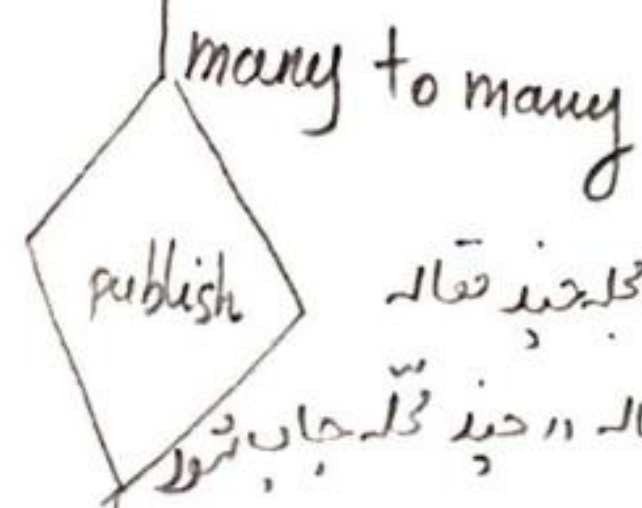 many to many
publish
مجله چند مقاله
در چند مجله چاپ شود